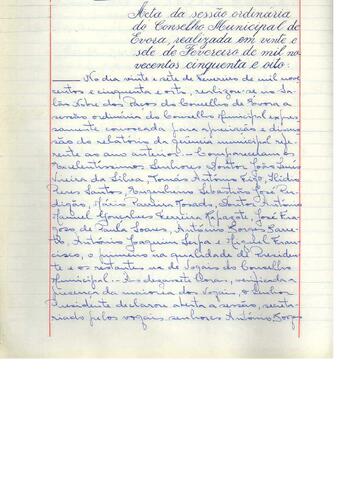 Acta da sessão ordinária
do Conselho Municipal de
Évora, realizada em vinte e
sete de Fevereiro de mil no-
vecentos cinquenta e oito:
No dia vinte e sete de Fevereiro de mil nove
centos e cinquenta e oito, realizou-se no Sa-
lão Nobre dos Paços do Concelho de Évora a
sessão ordinária do Conselho Municipal expres-
samente convocada para apreciação e discus-
são do relatório da gerência municipal refe-
rente ao ano anterior. - Compareceram os
Excelentíssimos Senhores Doutor João Luís
Vieira da Silva, Tomás António, Ilídio
Peres Santos, Engenheiro Sebastião José Per-
digão, Mário Paulino Rosado, António
Manuel Gonçalves Ferreira Rapazote, José Fra-
goso de Paula Soares, António Borges Barre-
to, António Joaquim Serpa e Miguel Fran-
cisco, o primeiro na qualidade de Presiden-
te e os restantes na de Vogais do Conselho
Municipal. - Às dezassete horas, verificada a
presença da maioria dos Vogais, o Senhor
Presidente declarou aberta a sessão, secreta-
riado pelos vogais senhores António Borges